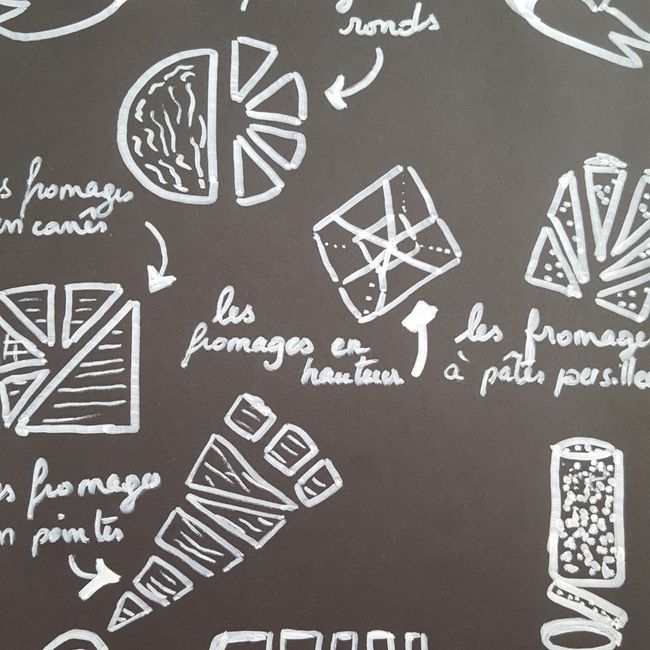 ronds
fromages
en carrés
les
fromages en
hauteur
les fromage
à pâtes persillé
fromages
pointes